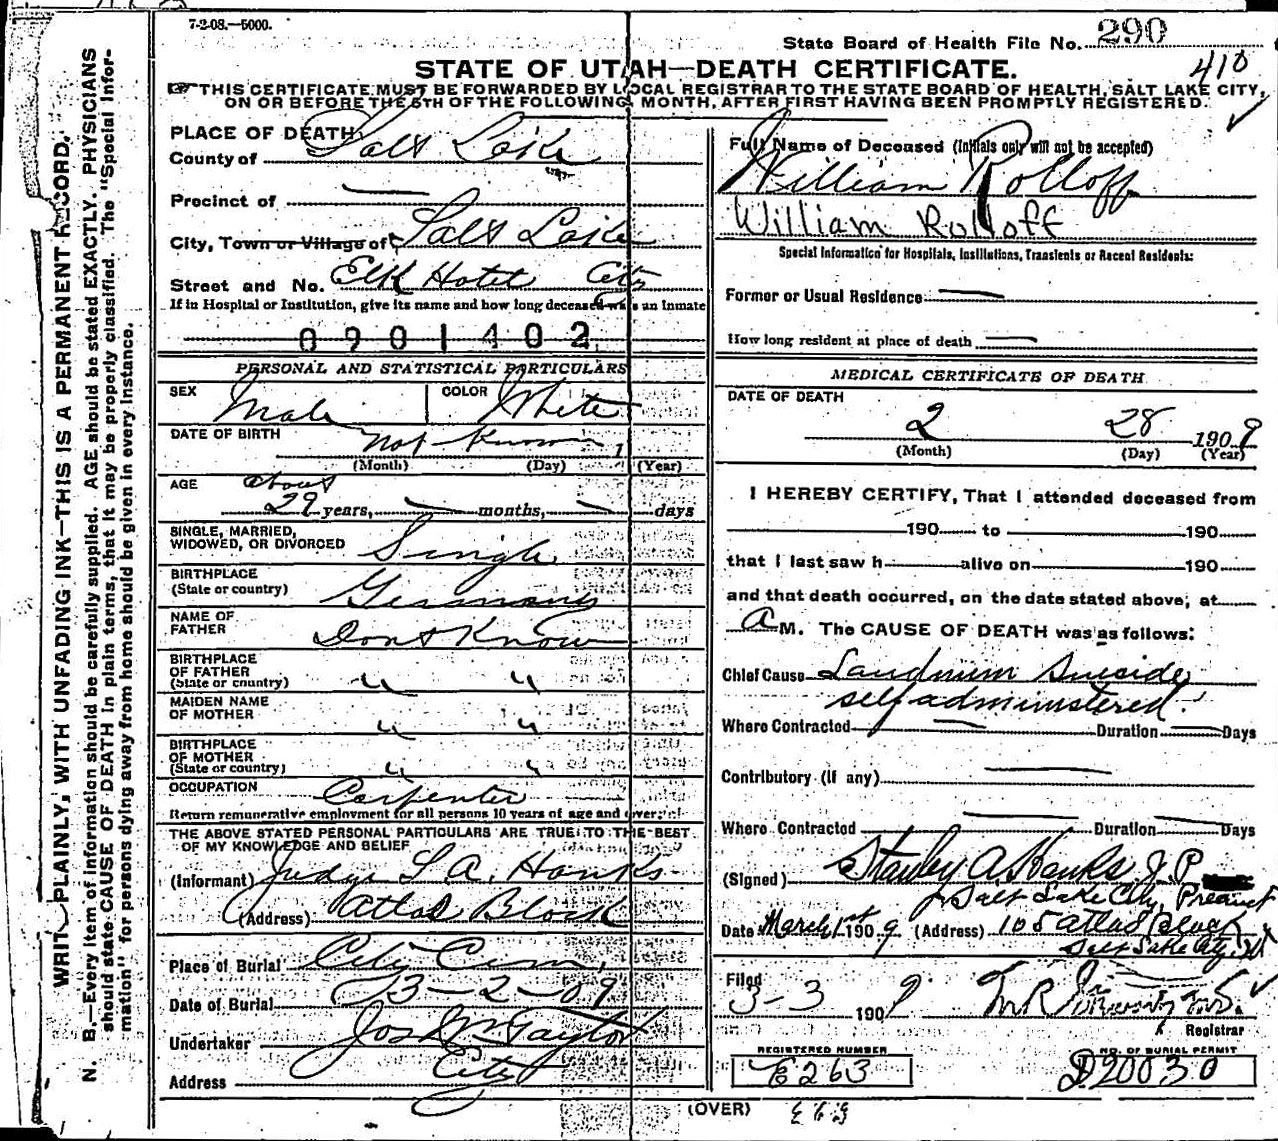 7-2-08.—5000.
State Board of Health File No. 290
410
STATE OF UTAH—DEATH CERTIFICATE.
THIS CERTIFICATE MUST BE FORWARDED BY LOCAL REGISTRAR TO THE STATE BOARD OF HEALTH, SALT LAKE CITY,
ON OR BEFORE THE 5TH OF THE FOLLOWING MONTH, AFTER FIRST HAVING BEEN PROMPTLY REGISTERED.
WRITE PLAINLY, WITH UNFADING INK—THIS IS A PERMANENT RECORD.
N. B.—Every item of information should be carefully supplied. AGE should be stated EXACTLY. PHYSICIANS
should state CAUSE OF DEATH in plain terms, that it may be properly classified. The "Special Infor-
mation" for persons dying away from home should be given in every instance.
PLACE OF DEATH
County of Salt Lake
Precinct of —
City, Town or Village of Salt Lake
Street and No. Elk Hotel City
If in Hospital or Institution, give its name and how long deceased was an inmate
0901402
PERSONAL AND STATISTICAL PARTICULARS
SEX Male COLOR White
DATE OF BIRTH not known 1
(Month) (Day) (Year)
AGE about
29 years, — months, — days
SINGLE, MARRIED,
WIDOWED, OR DIVORCED Single
BIRTHPLACE
(State or country) Germany
NAME OF
FATHER Dont Know
BIRTHPLACE
OF FATHER
(State or country) " "
MAIDEN NAME
OF MOTHER " "
BIRTHPLACE
OF MOTHER
(State or country) " "
OCCUPATION Carpenter
Return remunerative employment for all persons 10 years of age and over.
THE ABOVE STATED PERSONAL PARTICULARS ARE TRUE TO THE BEST
OF MY KNOWLEDGE AND BELIEF
(Informant) Judge S. A. Hanks
(Address) Atlas Block
Place of Burial City Cem,
Date of Burial 3-2-09
Undertaker Jos Wm Taylor
Address City
Full Name of Deceased (Initials only will not be accepted)
William Rolloff
William Rolloff
Special Information for Hospitals, Institutions, Transients or Recent Residents:
Former or Usual Residence —
How long resident at place of death —
MEDICAL CERTIFICATE OF DEATH
DATE OF DEATH
2 28 1909
(Month) (Day) (Year)
I HEREBY CERTIFY, That I attended deceased from
190 to 190
that I last saw h alive on 190
and that death occurred, on the date stated above, at
A M. The CAUSE OF DEATH was as follows:
Chief Cause Laudnum Suicide
self administered.
Where Contracted — Duration — Days
Contributory (if any) —
Where Contracted — Duration — Days
(Signed) Stanley A Hanks J.P.
Salt Lake City, Precinct
Date March 1st 1909 (Address) 105 Atlas Block
Salt Lake City, Ut
Filed
3-3 1909
Registrar
REGISTERED NUMBER
E263
NO. OF BURIAL PERMIT
D20030
(OVER)